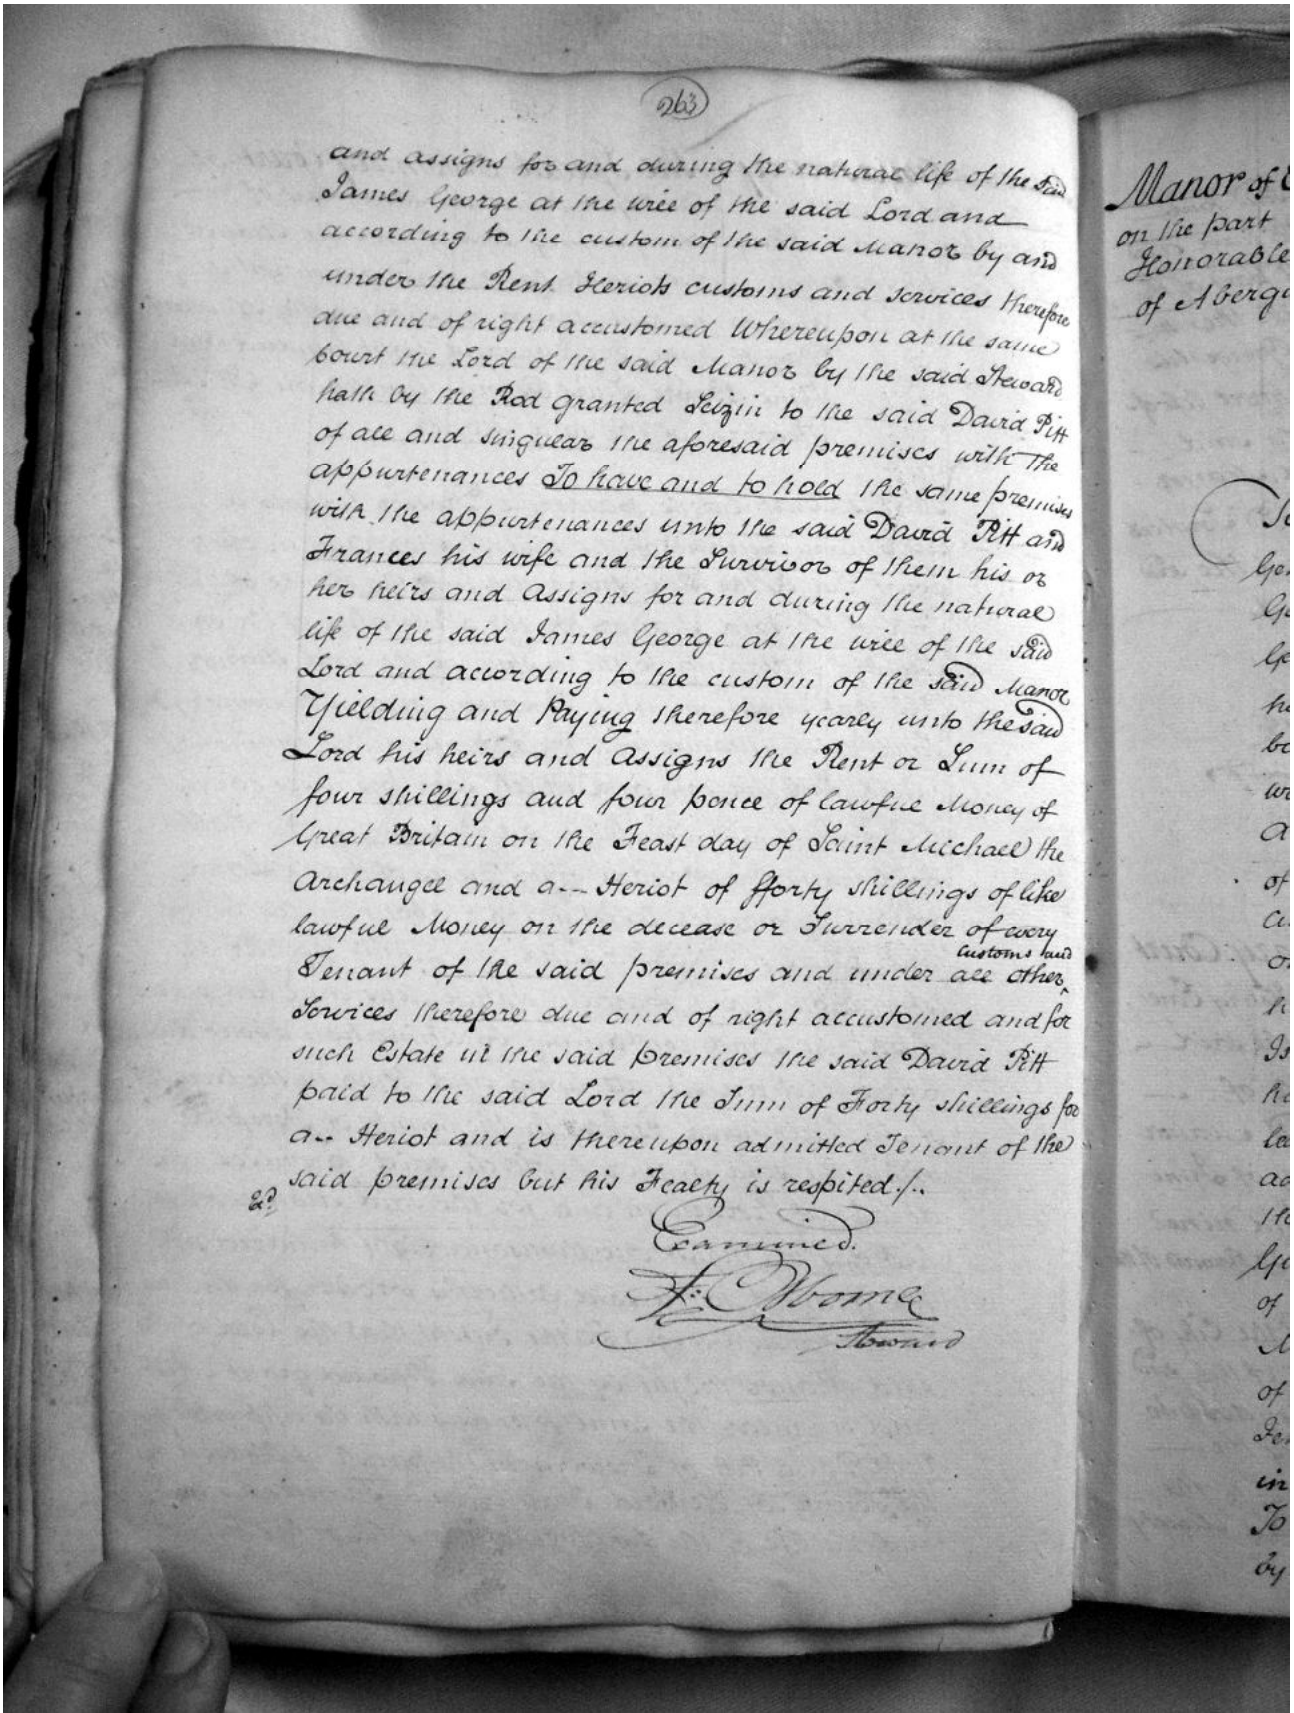 263
and assigns for and during the natural life of the said
James George at the will of the said Lord and
according to the custom of the said Manor by and
under the Rent Heriots customs and services therefore
due and of right accustomed Whereupon at the same
Court the Lord of the said Manor by the said Steward
hath by the Rod granted Seizin to the said David Pitt
of all and singular the aforesaid premises with the
appurtenances To have and to hold the same premises
with the appurtenances unto the said David Pitt and
Frances his wife and the Survivor of them his or
her heirs and Assigns for and during the natural
life of the said James George at the will of the said
Lord and according to the custom of the said Manor
Yielding and Paying therefore yearly unto the said
Lord his heirs and Assigns the Rent or Sum of
four shillings and four pence of lawful Money of
Great Britain on the Feast day of Saint Michael the
Archangel and a-- Heriot of fforty shillings of like
lawful Money on the decease or Surrender of every
customs and
Tenant of the said premises and under all other ^
Services therefore due and of right accustomed and for
such Estate in the said premises the said David Pitt
paid to the said Lord the Sum of Forty shillings for
a-- Heriot and is thereupon admitted Tenant of the
said premises but his Fealty is respited./..
Examined.
Steward
Manor of
on the part
Honorable
of Aberg